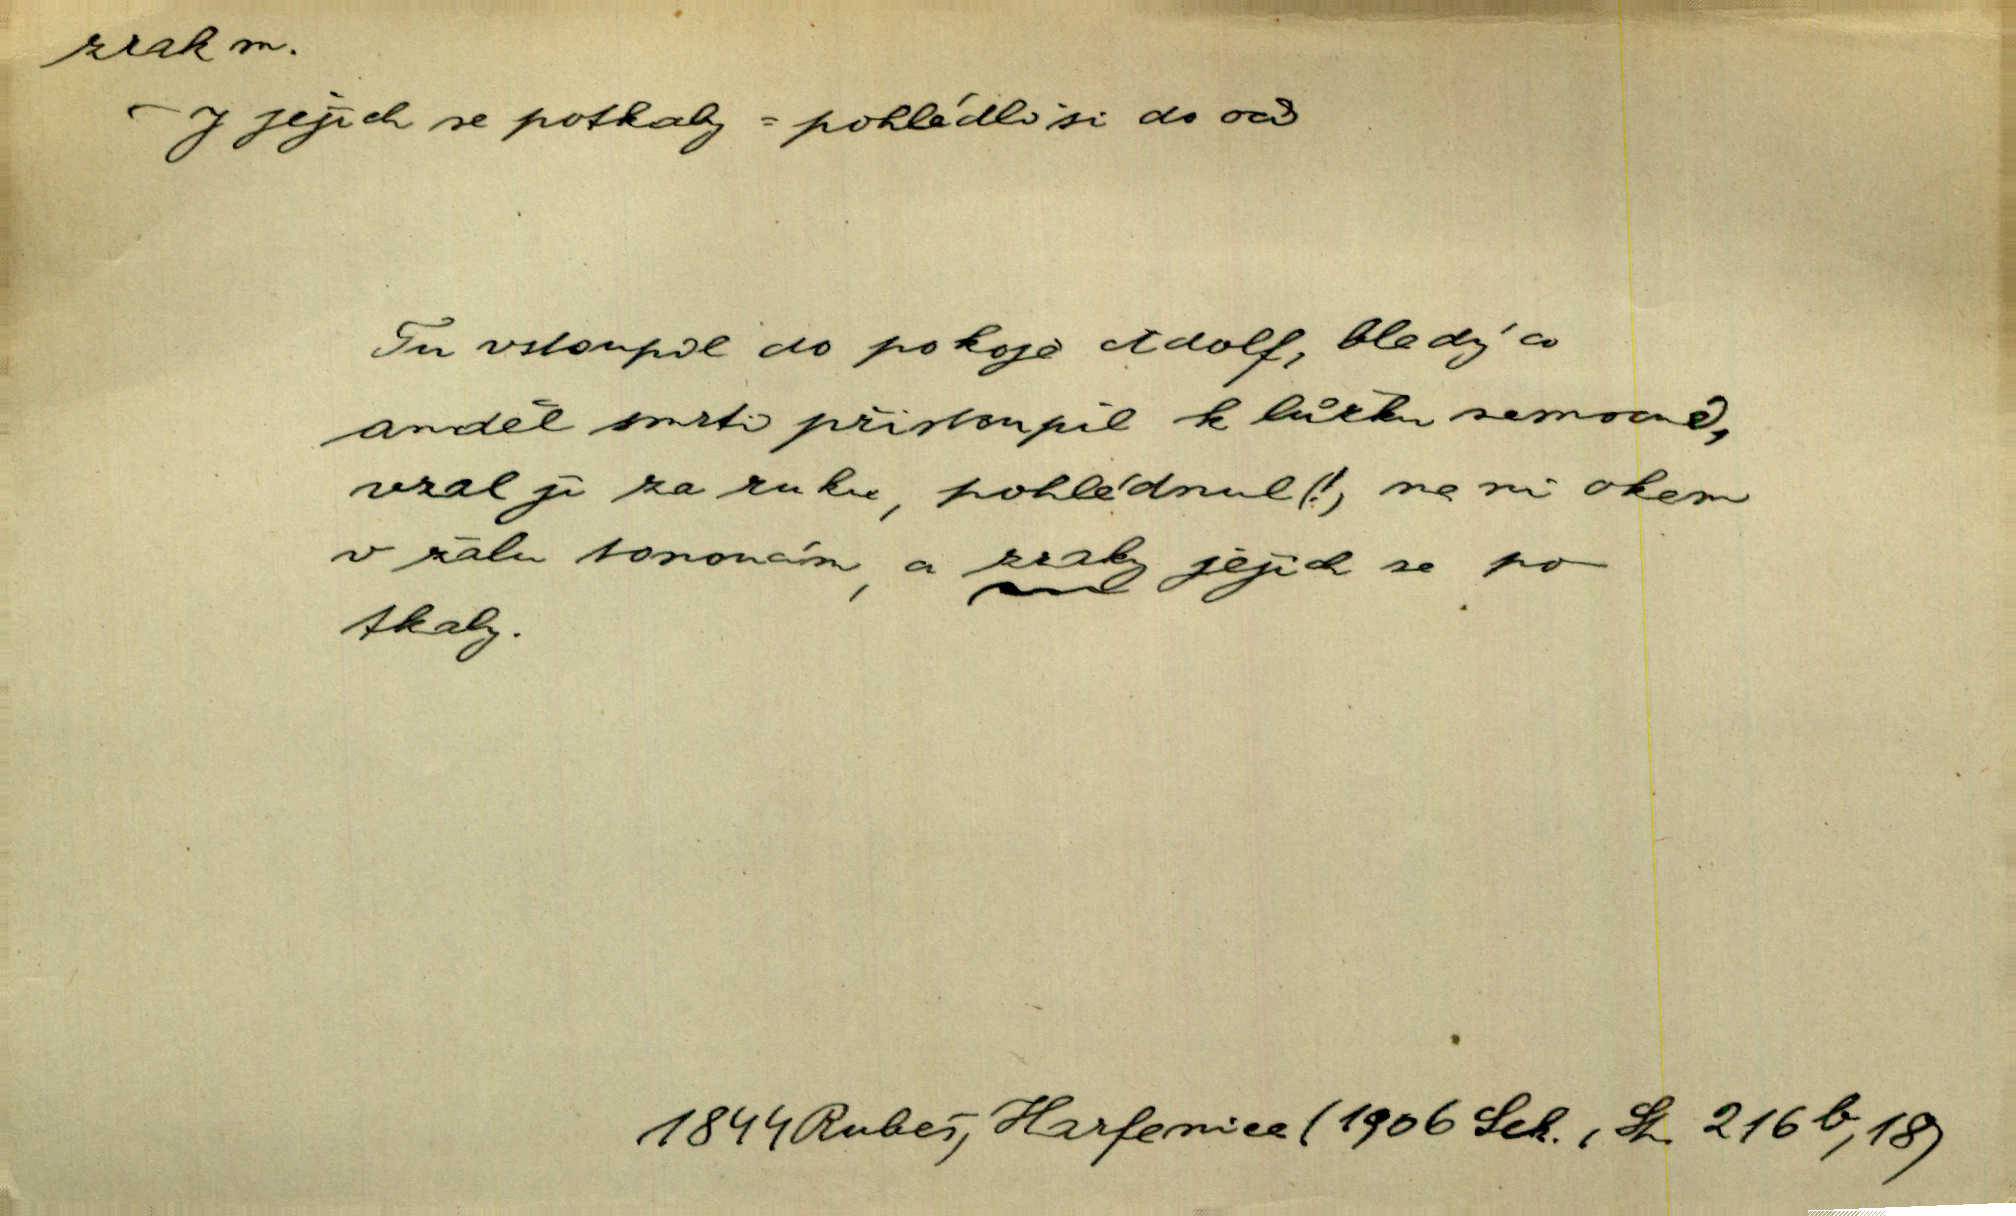 zrak m.
– y jejich se potkaly = pohlédli si do očí
Tu vstoupil do pokoje Adolf, bledý co
anděl smrti přistoupil k lůžku nemocné,
vzal ji za ruku, pohlédnul (!) na ni okem
v žalu tonoucím, a zraky jejich se po
tkaly.
1844 Rubeš, Harfenice (1906 Sek., St. 216 b, 18)